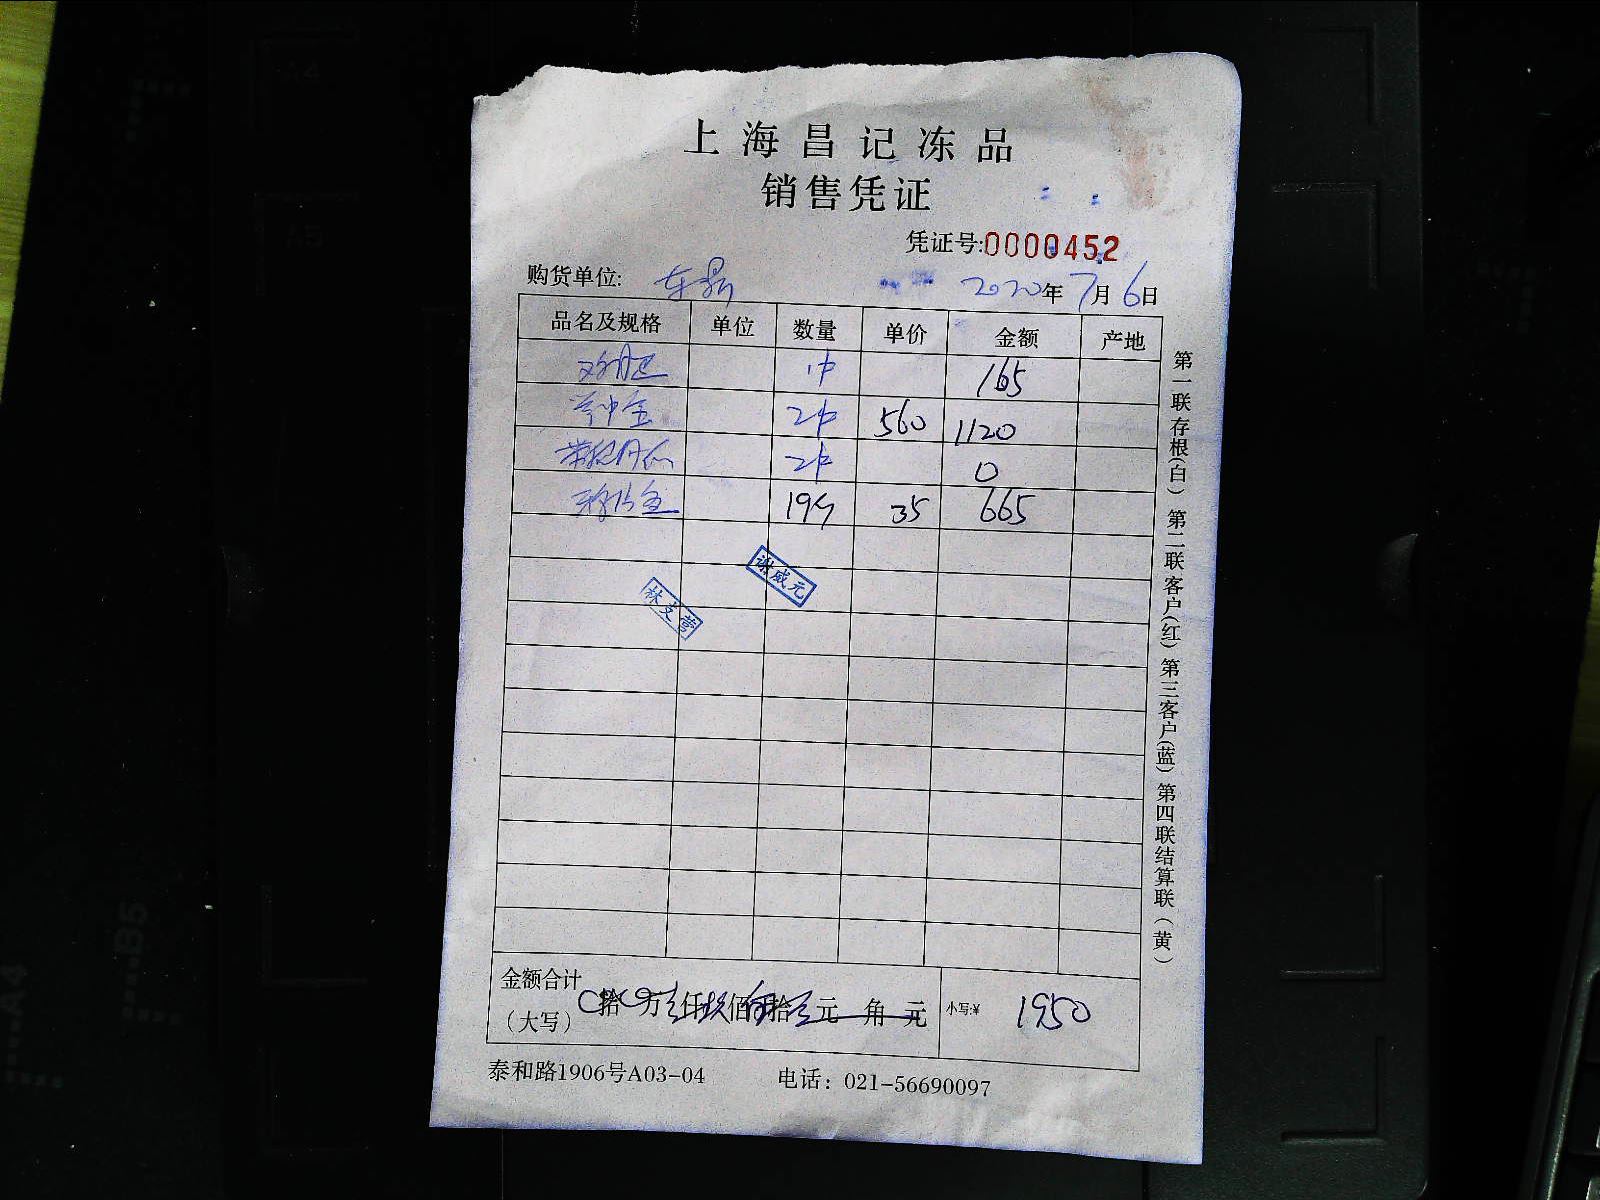 上海昌记冻品
销售凭证
凭证号:0000452
购货单位: 东鼎 2020年7月6日
品名及规格 单位 数量 单价 金额 产地
1件 165
2件 560 1120
2件 0
19个 35 665
谢威元
林支营
金额合计
(大写) 拾 万 仟 佰 拾 元 角 元 小写:¥ 1950
泰和路1906号A03-04 电话: 021-56690097
第一联存根(白) 第二联客户(红) 第三客户(蓝) 第四联结算联(黄)
A4
A5
B5
A4